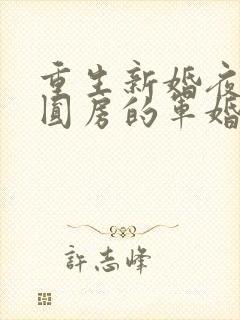 重生新婚夜
圓房的軍婚
許志峰